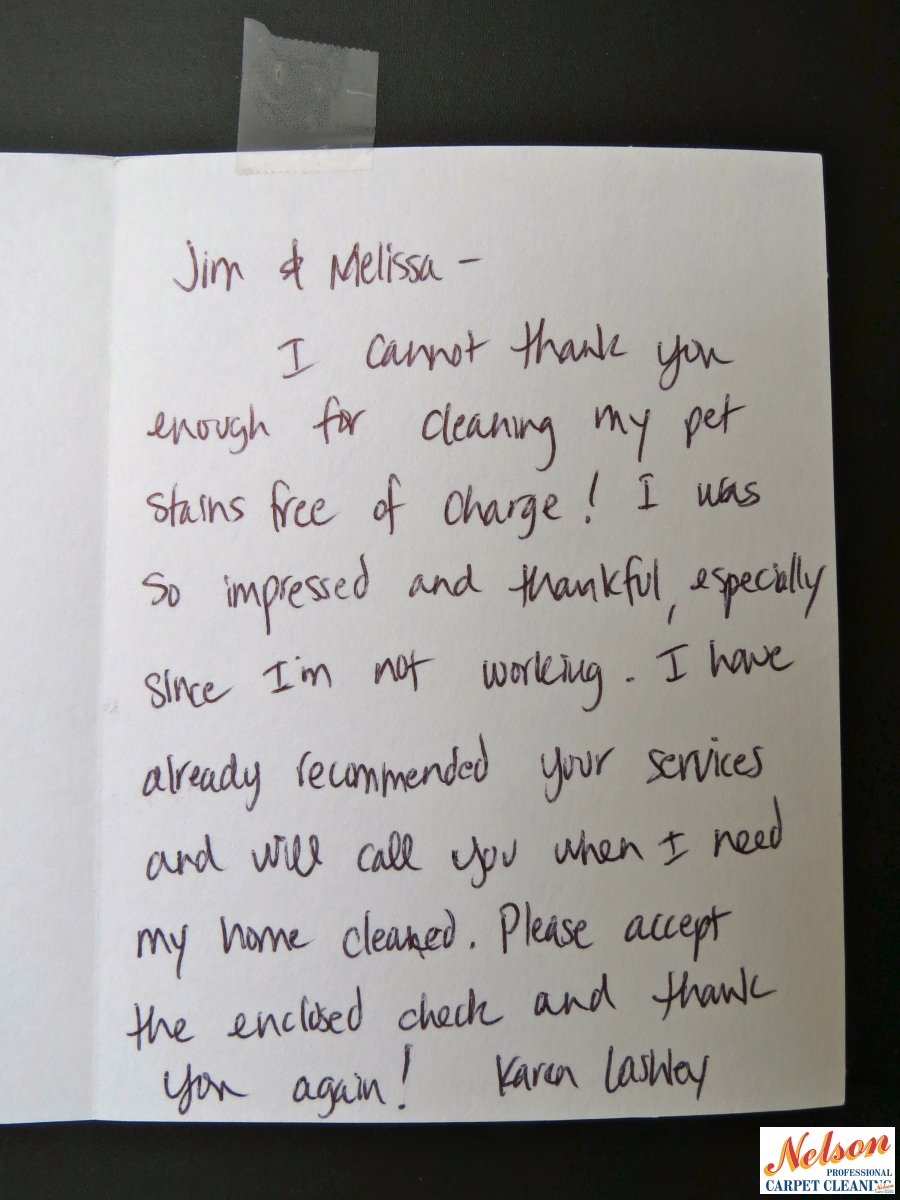 Jim & Melissa -
I cannot thank you
enough for cleaning my pet
stains free of charge! I was
so impressed and thankful, especially
since I'm not working. I have
already recommended your services
and will call you when I need
my home cleaned. Please accept
the enclosed check and thank
you again! Karen Lashley
Nelson
PROFESSIONAL
CARPET CLEANING